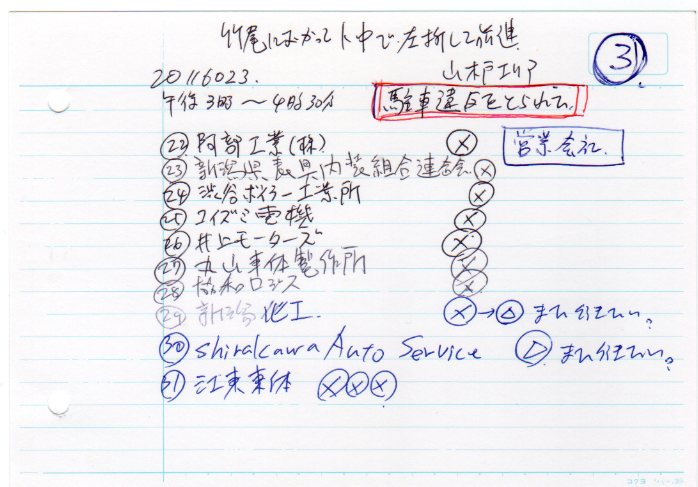 竹尾にむかって 中で左折して前進
③
20116023.
山木戸エリア
午後3時〜4時30分
駐車違反をとられた.
営業会社.
㉒ 阿部工業(株) ⓧ
㉓ 新潟県表具内装組合連合会 ⓧ
㉔ 渋谷ボイラー工業所 ⓧ
㉕ コイズミ電機 ⓧ
㉖ 井上モータース ⓧ
㉗ 丸山車体製作所 ⓧ
㉘ 協和ロジス ⓧ
㉙ 化工. ⓧ→△
㉚ Shirakawa Auto Service △
㉛ 江東車体 ⓧⓧⓧ
コクヨ